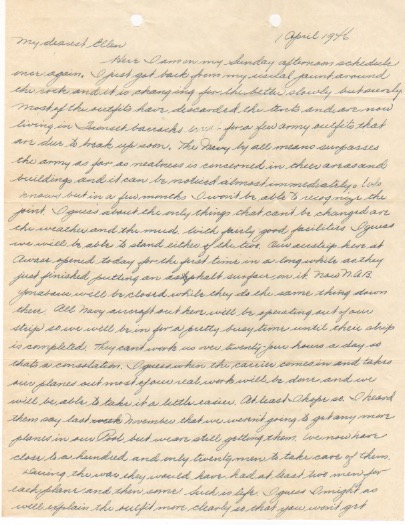 1 April 1946
My dearest Ellen
Here I am on my Sunday afternoon schedule
once again. I just got back from my usual jaunt around
the rock and it is changing for the better slowly but surely
most of the outfits have discarded the tents and are now
living in barracks for a few army outfits that
are due to break up soon. The Navy by all means surpasses
the army as far as neatness is concerned in their areas and
buildings and it can be noticed almost immediately.
knows but in a few months I won't be able to recognize the
joint. I guess about the only things that can't be changed are
the weather and the mud. With fairly good facilities I guess
we will be able to stand either of the two. Our airstrip here at
Awase opened today for the first time in a long while as they
just finished putting an asphalt surface on it. Now N.A.B.
Yonabaru will be closed while they do the same thing down
there. All Navy aircraft out here will be operating out of our
strip so we will be in for a pretty busy time until their strip
is completed. They cant work us over twenty-four hours a day so
thats a consolation. I guess when the carrier comes in and takes
our planes out most of our real work will be done and we
will be able to take it a little easier. At least I hope so. I heard
them say last November that we weren't going to get any more
planes in our Pool but we are still getting them. We now have
close to a hundred and only twenty men to take care of them.
During the war they would have had at least two men for
each plane and then some. Such is life. I guess I might as
well explain the outfit more clearly so that you won't get